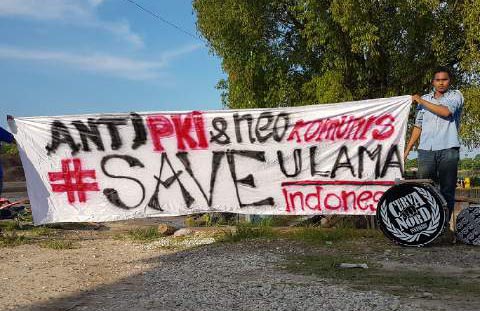 ANTI PKI & neo KOMUNIS
#SAVE ULAMA
Indones
CURVA
NORD